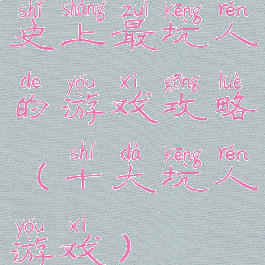 shǐ shàng zuì kēng rén
史上最坑人
de yóu xì gōng lüè
的游戏攻略
shí dà kēng rén
（十大坑人
yóu xì
游戏）